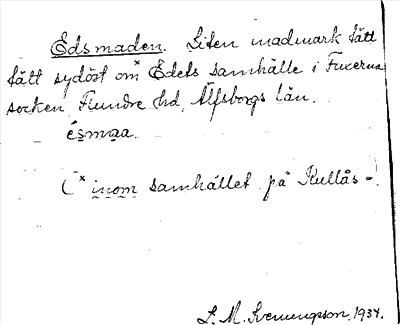 Edsmaden. Liten madmark tätt
tätt sydöst om ˣ Edets samhälle i Fuxerna
socken, Flundre hd, Älfsborgs län.
ésmaa.
(ˣ inom samhället på Kullås-.
L. M. Svenungsson, 1934.